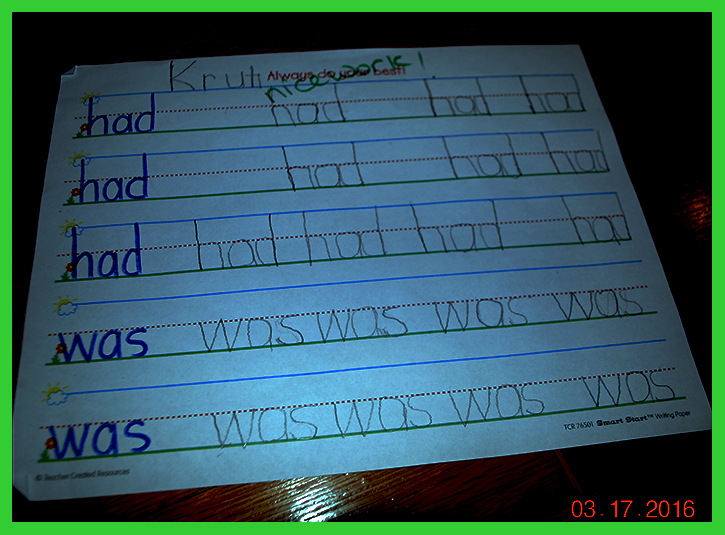 Kruti Always do your best!
nice work!
had had had had
had had had had
had had had had had
was was was was was
was was was was was
TCR 76501 Smart Start™ Writing Paper
© Teacher Created Resources
03.17.2016